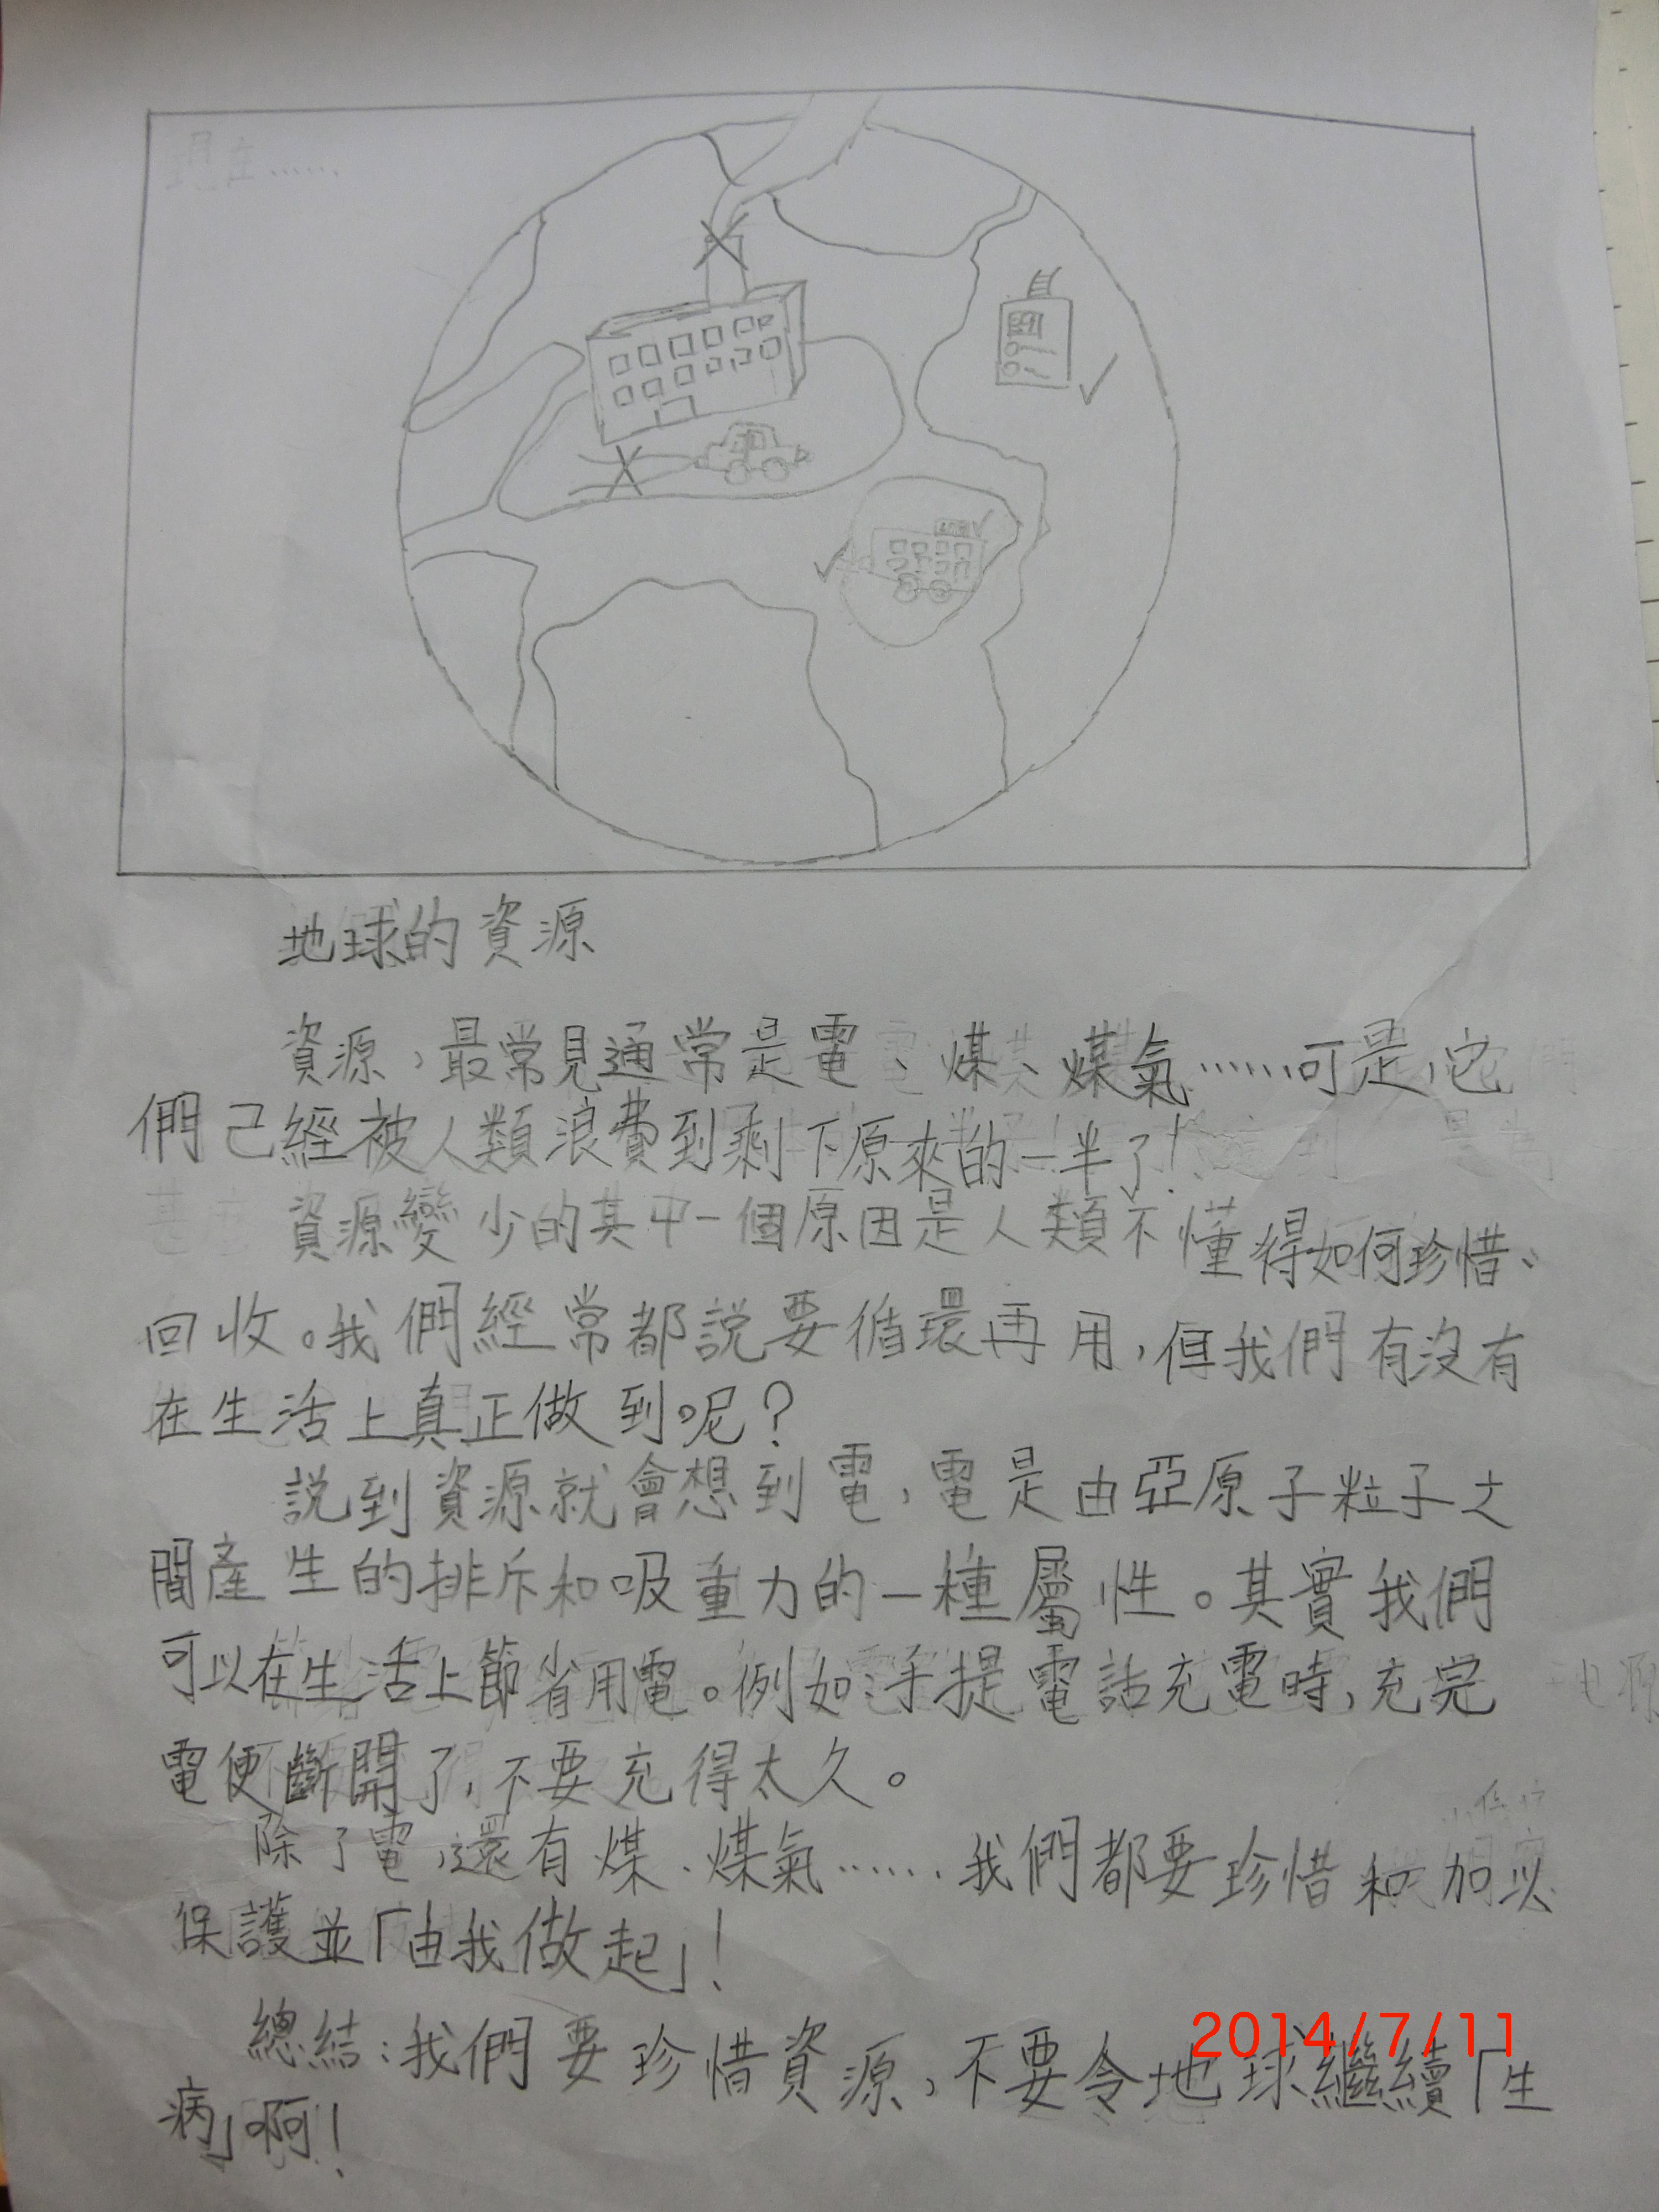 地球的資源
資源，最常見通常是電、煤、煤氣……可是，它
們己經被人類浪費到剩下原來的一半了！
資源變少的其中一個原因是人類不懂得如何珍惜、
回收。我們經常都說要循環再用，但我們有沒有
在生活上真正做到呢？
說到資源就會想到電，電是由亞原子粒子之
間產生的排斥和吸重力的一種屬性。其實我們
可以在生活上節省用電。例如：手提電話充電時，充完
電便斷開了，不要充得太久。
除了電，還有煤、煤氣……我們都要珍惜和加以
保護並「由我做起」！
總結：我們要珍惜資源，不要令地球繼續「生
病」啊！
2014/7/11